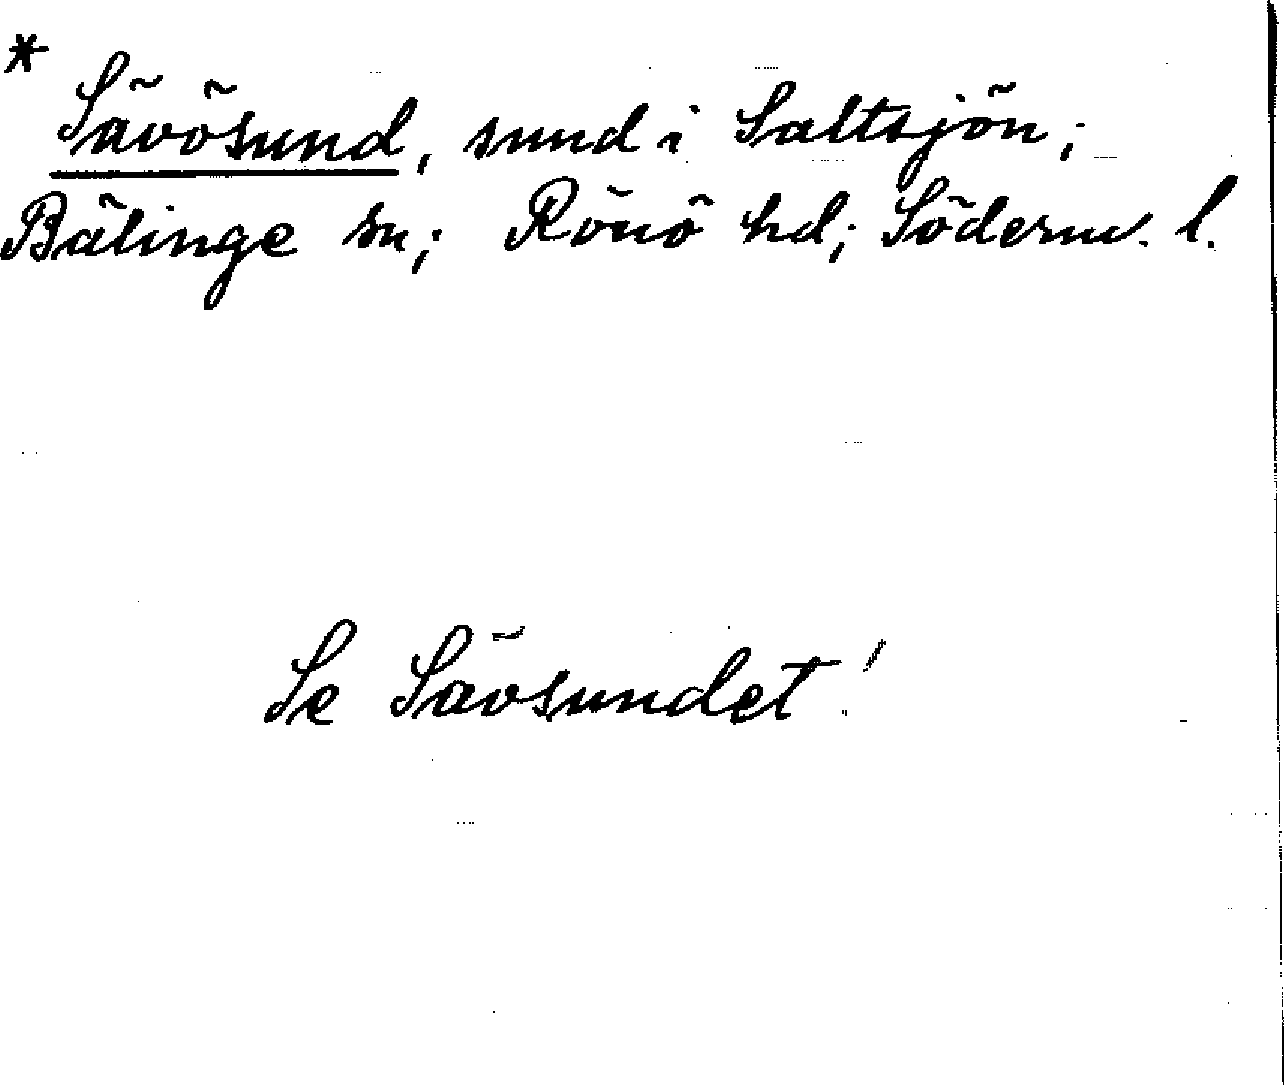 * Sävösund, sund i Saltsjön;
Bälinge sn; Rönö hd; Söderm. l.
Se Sävsundet!